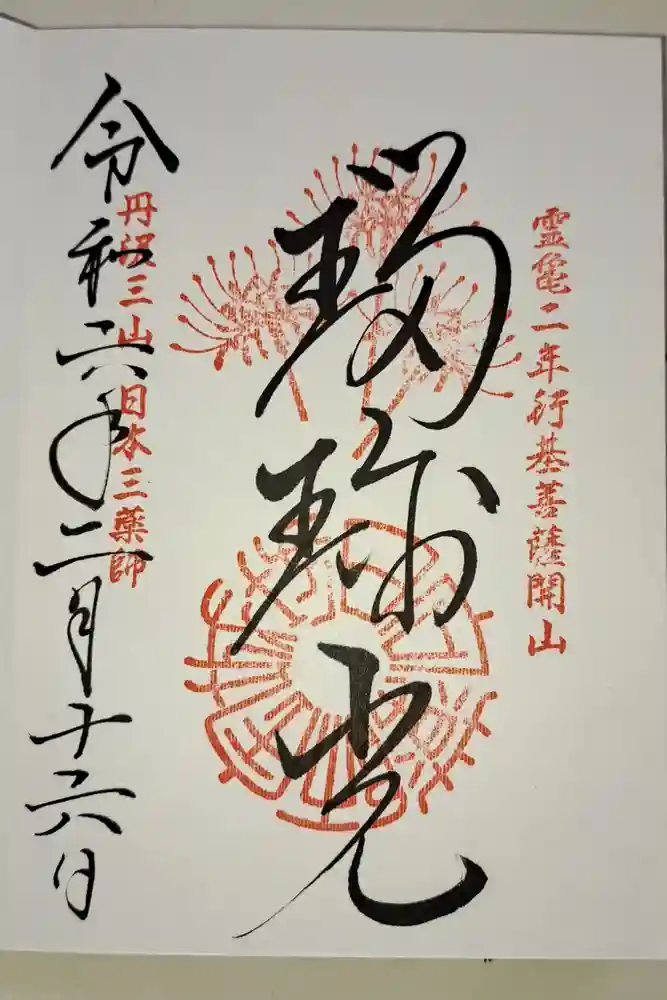 霊亀二年行基菩薩開山
瑠璃光
丹沢三山日本三薬師
令和六年二月十六日